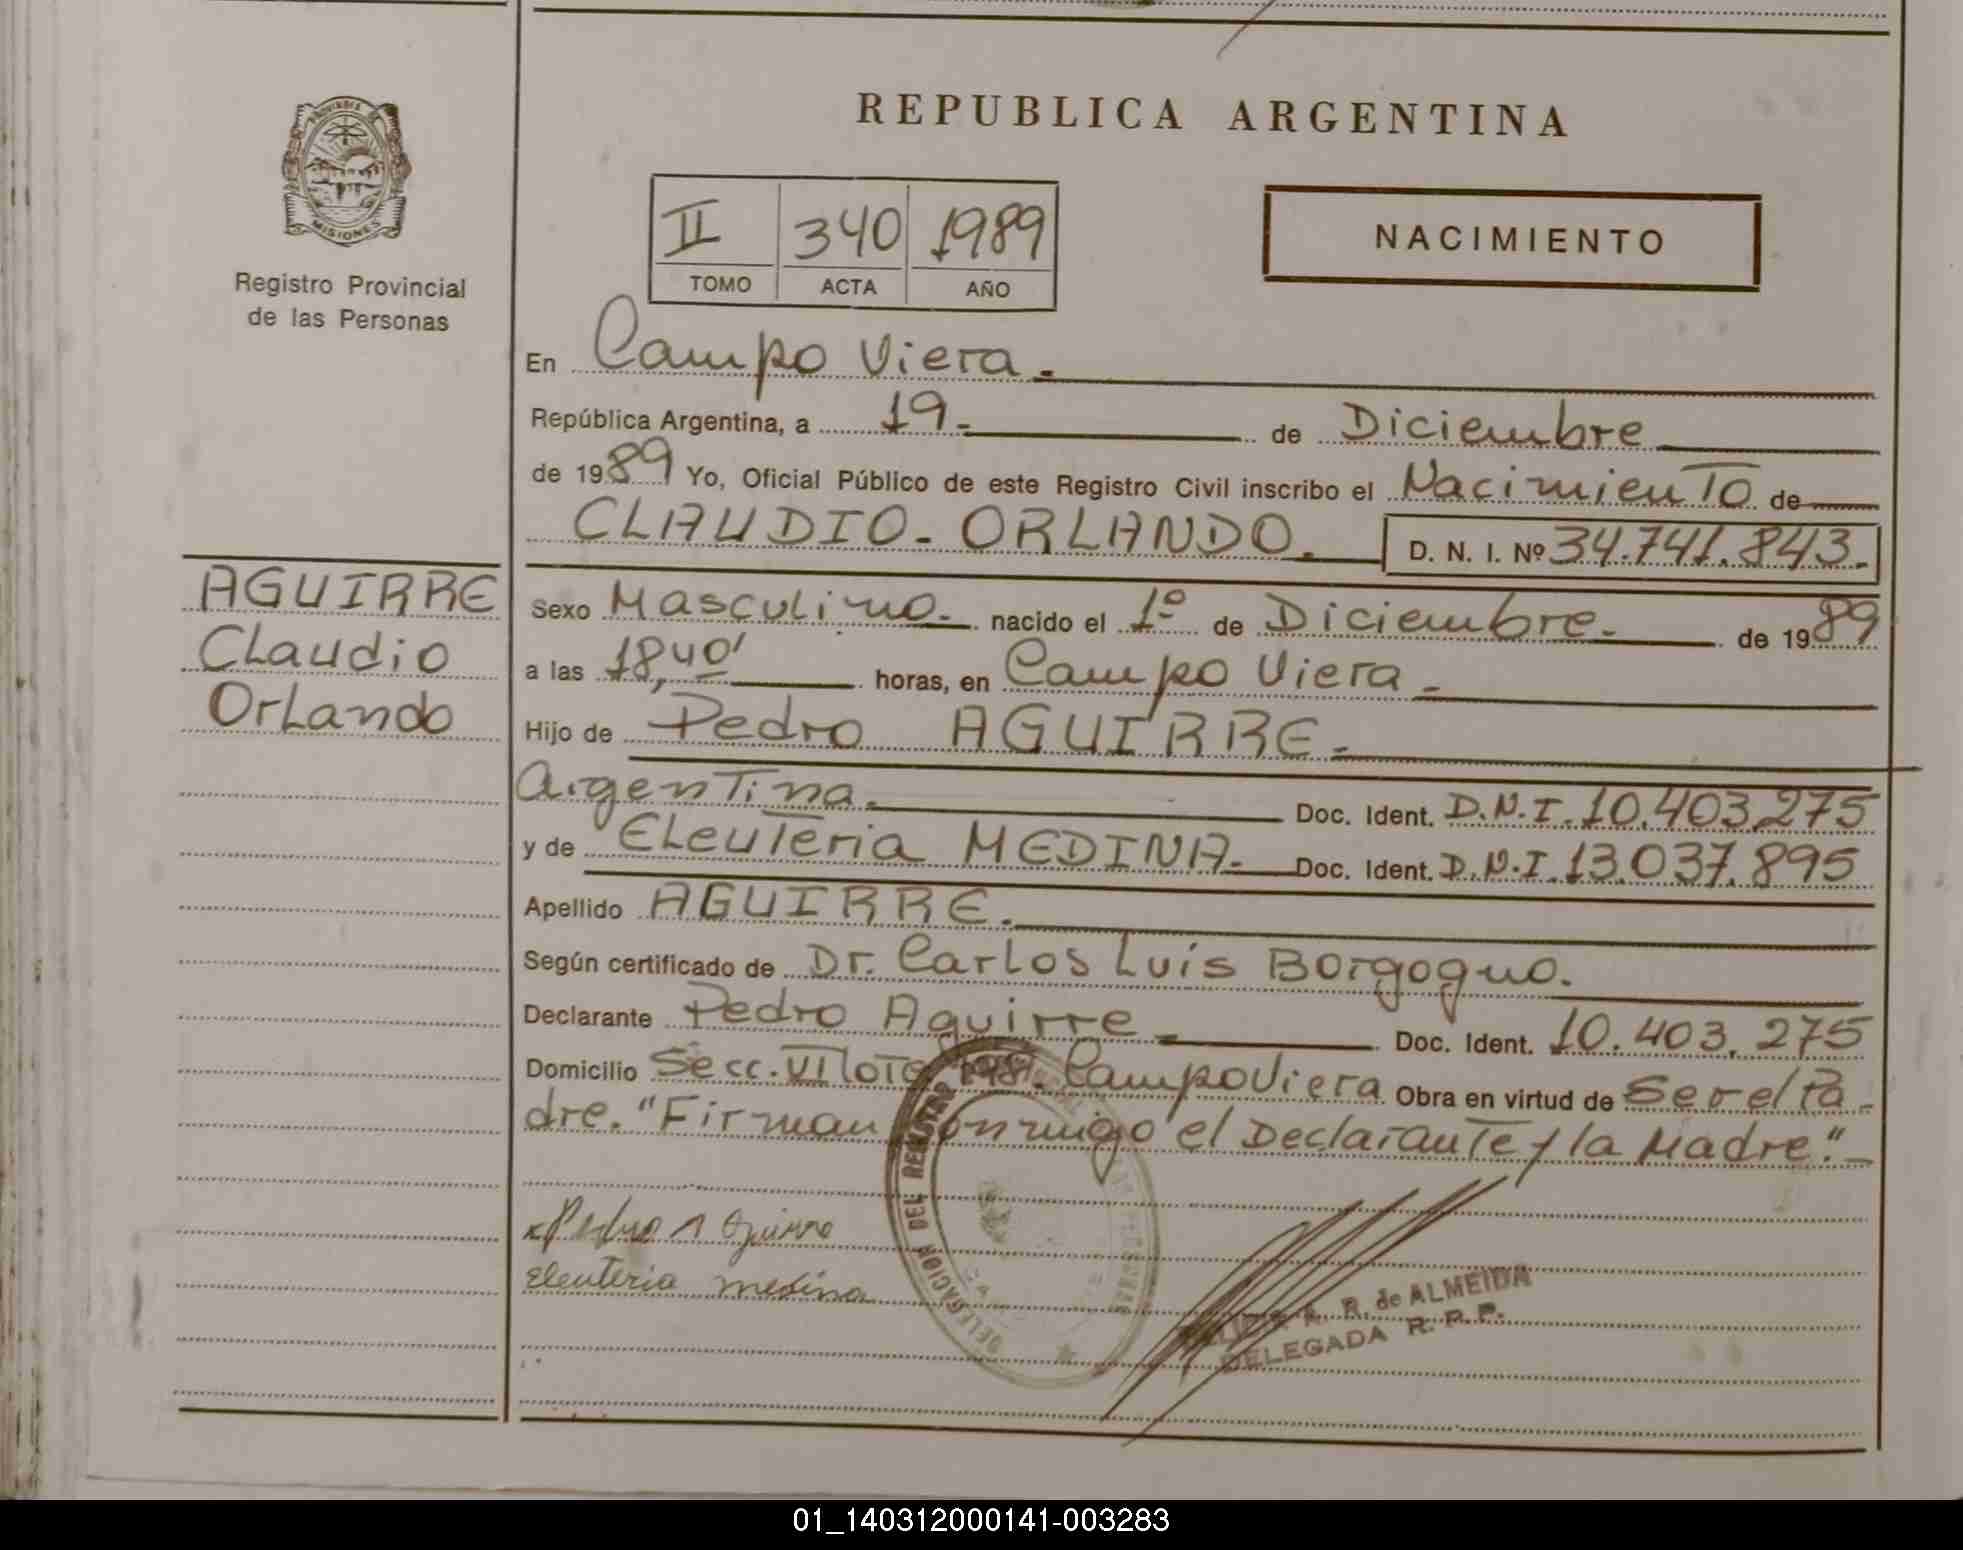 REPUBLICA ARGENTINA
PROVINCIA DE
MISIONES
Registro Provincial
de las Personas
II 340 1989
TOMO ACTA AÑO
NACIMIENTO
En Campo Viera.
República Argentina, a 19- de Diciembre
de 1989 Yo, Oficial Público de este Registro Civil inscribo el Nacimiento de
CLAUDIO- ORLANDO. D. N. I. Nº 34.741.843.
AGUIRRE
Claudio
Orlando
Sexo Masculino- nacido el 1º de Diciembre. de 1989
a las 18,40' horas, en Campo Viera-
Hijo de Pedro AGUIRRE-
Argentina. Doc. Ident. D.N.I. 10.403.275
y de Eleuteria MEDINA- Doc. Ident. D.N.I. 13.037.895
Apellido AGUIRRE.
Según certificado de Dr. Carlos Luis Borgogno.
Declarante Pedro Aguirre- Doc. Ident. 10.403.275
Domicilio Secc. VI Lote 198. Campo Viera Obra en virtud de Ser el Pa-
dre. "Firman conmigo el Declarante y la Madre."-
Pedro A
Eleuteria medina
DELEGACION DEL REGISTRO
R. de ALMEIDA
DELEGADA R. P. P.
01_140312000141-003283